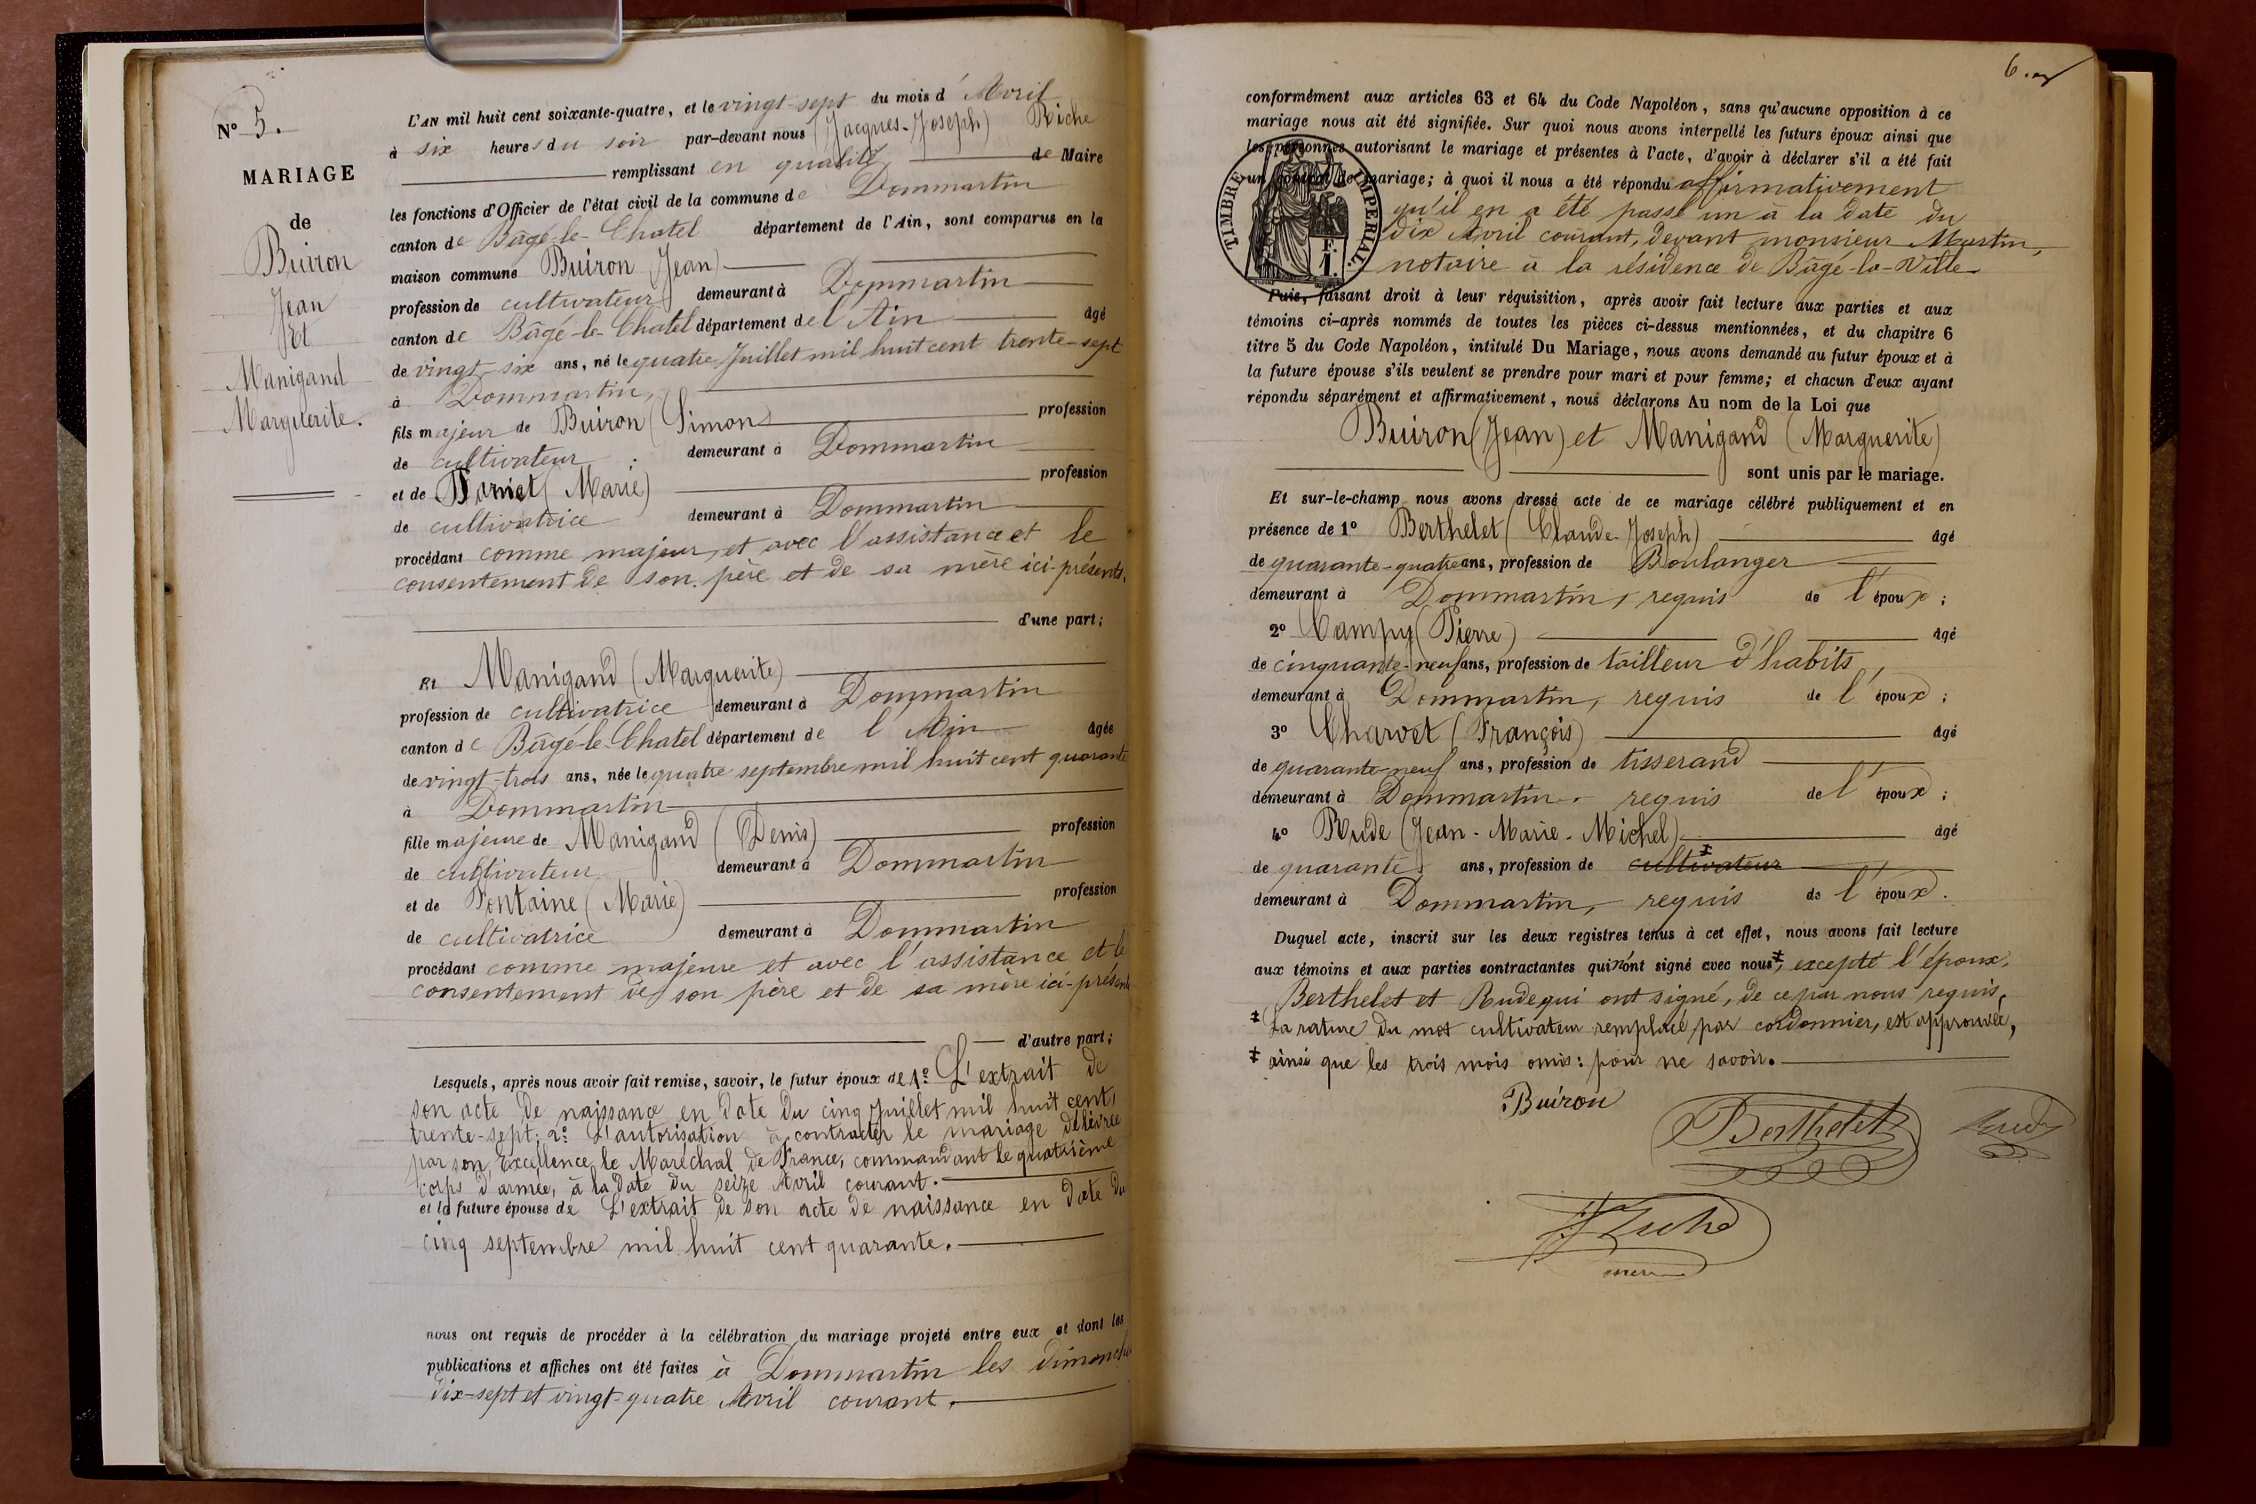 N° 5.
MARIAGE
de
Buiron
Jean
Et
Manigand
Marguerite.
L'AN mil huit cent soixante-quatre, et le vingt-sept du mois d'Avril
à six heures du soir par-devant nous (Jacques-Joseph) Riche
remplissant en qualité de Maire
les fonctions d'Officier de l'état civil de la commune de Dommartin
canton de Bâgé-le-Chatel département de l'Ain, sont comparus en la
maison commune Buiron (Jean)
profession de cultivateur demeurant à Dommartin
canton de Bâgé-le-Chatel département de l'Ain âgé
de vingt-six ans, né le quatre Juillet mil huit cent trente-sept
à Dommartin,
fils majeur de Buiron (Simon) profession
de cultivateur demeurant à Dommartin
et de (Marie) profession
de cultivatrice demeurant à Dommartin
procédant comme majeur, et avec l'assistance et le
consentement de son père et de sa mère ici-présents,
d'une part;
Et Manigand (Marguerite)
profession de cultivatrice demeurant à Dommartin
canton de Bâgé-le-Chatel département de l'Ain âgée
de vingt-trois ans, née le quatre septembre mil huit cent quarante
à Dommartin
fille majeure de Manigand (Denis) profession
de cultivateur demeurant à Dommartin
et de Fontaine (Marie) profession
de cultivatrice demeurant à Dommartin
procédant comme majeure et avec l'assistance et le
consentement de son père et de sa mère ici-présents
d'autre part;
Lesquels, après nous avoir fait remise, savoir, le futur époux de 1° L'extrait de
son acte de naissance en date du cinq Juillet mil huit cent
trente-sept; 2° L'autorisation à contracter le mariage délivrée
par son Excellence le Maréchal de France, commandant le quatrième
corps d'armée, à la date du seize Avril courant.
et la future épouse de L'extrait de son acte de naissance en date du
cinq septembre mil huit cent quarante.
nous ont requis de procéder à la célébration du mariage projeté entre eux et dont les
publications et affiches ont été faites à Dommartin les dimanches
dix-sept et vingt-quatre Avril courant.
6.
conformément aux articles 63 et 64 du Code Napoléon, sans qu'aucune opposition à ce
mariage nous ait été signifiée. Sur quoi nous avons interpellé les futurs époux ainsi que
les personnes autorisant le mariage et présentes à l'acte, d'avoir à déclarer s'il a été fait
un contrat de mariage; à quoi il nous a été répondu affirmativement
qu'il en a été passé un à la date du
dix Avril courant, devant monsieur Martin,
notaire à la résidence de Bâgé-la-Ville
TIMBRE IMPERIAL
F.
1.
Puis, faisant droit à leur réquisition, après avoir fait lecture aux parties et aux
témoins ci-après nommés de toutes les pièces ci-dessus mentionnées, et du chapitre 6
titre 5 du Code Napoléon, intitulé Du Mariage, nous avons demandé au futur époux et à
la future épouse s'ils veulent se prendre pour mari et pour femme; et chacun d'eux ayant
répondu séparément et affirmativement, nous déclarons Au nom de la Loi que
Buiron (Jean) et Manigand (Marguerite)
sont unis par le mariage.
Et sur-le-champ nous avons dressé acte de ce mariage célébré publiquement et en
présence de 1° Berthelet (Claude-Joseph) âgé
de quarante-quatre ans, profession de Boulanger
demeurant à Dommartin, requis de l'époux;
2° Campy (Pierre) âgé
de cinquante-neuf ans, profession de tailleur d'habits,
demeurant à Dommartin, requis de l'époux;
3° Charvet (François) âgé
de quarante-neuf ans, profession de tisserand
demeurant à Dommartin. requis de l'époux;
4° Rude (Jean-Marie-Michel) âgé
de quarante ans, profession de cultivateur ‡
demeurant à Dommartin, requis de l'époux.
Duquel acte, inscrit sur les deux registres tenus à cet effet, nous avons fait lecture
aux témoins et aux parties contractantes qui n'ont signé avec nous ‡, excepté l'époux,
Berthelet et Rude qui ont signé, de ce par nous requis.
‡ La rature du mot cultivateur remplacé par cordonnier, est approuvée,
‡ ainsi que les trois mois omis: pour ne savoir.
Buiron
Berthelet
Rude